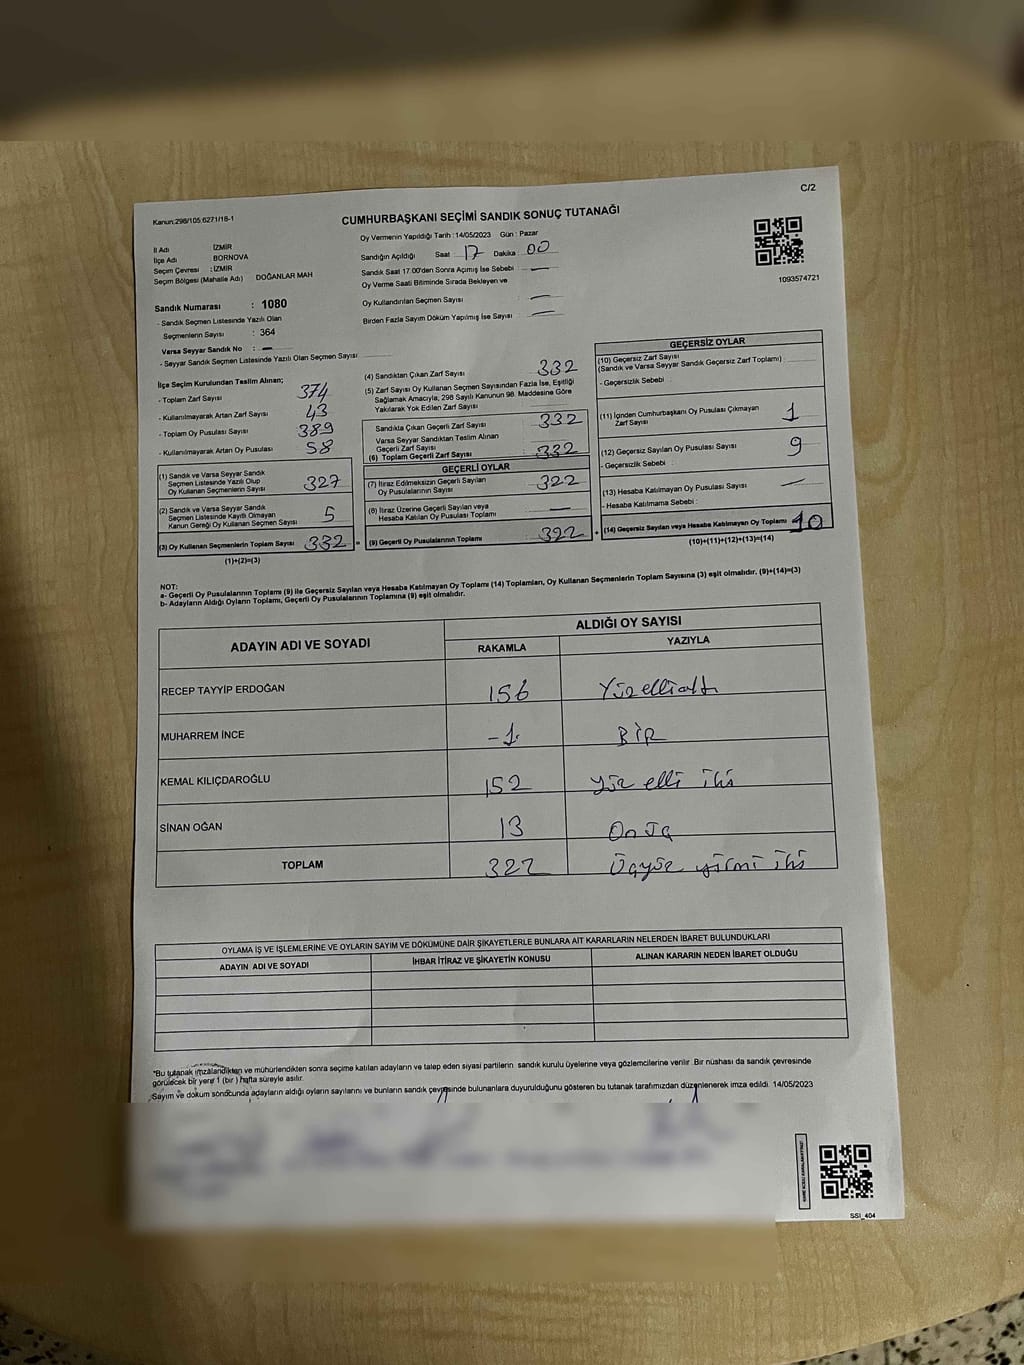 C/2
Kanun:298/105,6271/18-1
CUMHURBAŞKANI SEÇİMİ SANDIK SONUÇ TUTANAĞI
Oy Vermenin Yapıldığı Tarih :14/05/2023 Gün : Pazar
İl Adı İZMİR
İlçe Adı BORNOVA
Seçim Çevresi : İZMİR
Seçim Bölgesi (Mahalle Adı) DOĞANLAR MAH
Sandığın Açıldığı Saat 17 Dakika 00
Sandık Saat 17.00'den Sonra Açımış İse Sebebi : —
Oy Verme Saati Bitiminde Sırada Bekleyen ve
Oy Kullandırılan Seçmen Sayısı —
Birden Fazla Sayım Döküm Yapılmış İse Sayısı : —
1093574721
Sandık Numarası : 1080
- Sandık Seçmen Listesinde Yazılı Olan
Seçmenlerin Sayısı : 364
Varsa Seyyar Sandık No : —
- Seyyar Sandık Seçmen Listesinde Yazılı Olan Seçmen Sayısı
İlçe Seçim Kurulundan Teslim Alınan;
- Toplam Zarf Sayısı 374
- Kullanılmayarak Artan Zarf Sayısı 43
- Toplam Oy Pusulası Sayısı 389
- Kullanılmayarak Artan Oy Pusulası 58
(1) Sandık ve Varsa Seyyar Sandık
Seçmen Listesinde Yazılı Olup
Oy Kullanan Seçmenlerin Sayısı 327
(2) Sandık ve Varsa Seyyar Sandık
Seçmen Listesinde Kayıtlı Olmayan
Kanun Gereği Oy Kullanan Seçmen Sayısı 5
(3) Oy Kullanan Seçmenlerin Toplam Sayısı 332 =
(1)+(2)=(3)
(4) Sandıktan Çıkan Zarf Sayısı 332
(5) Zarf Sayısı Oy Kullanan Seçmen Sayısından Fazla İse, Eşitliği
Sağlamak Amacıyla, 298 Sayılı Kanunun 98. Maddesine Göre
Yakılarak Yok Edilen Zarf Sayısı
Sandıkta Çıkan Geçerli Zarf Sayısı 332
Varsa Seyyar Sandıktan Teslim Alınan
Geçerli Zarf Sayısı
(6) Toplam Geçerli Zarf Sayısı 332
GEÇERLİ OYLAR
(7) İtiraz Edilmeksizin Geçerli Sayılan
Oy Pusulalarının Sayısı 322
(8) İtiraz Üzerine Geçerli Sayılan veya
Hesaba Katılan Oy Pusulası Toplamı —
(9) Geçerli Oy Pusulalarının Toplamı 322 +
GEÇERSİZ OYLAR
(10) Geçersiz Zarf Sayısı
(Sandık ve Varsa Seyyar Sandık Geçersiz Zarf Toplamı) :
- Geçersizlik Sebebi :
(11) İçinden Cumhurbaşkanı Oy Pusulası Çıkmayan
Zarf Sayısı 1
(12) Geçersiz Sayılan Oy Pusulası Sayısı 9
- Geçersizlik Sebebi :
(13) Hesaba Katılmayan Oy Pusulası Sayısı —
- Hesaba Katılmama Sebebi :
(14) Geçersiz Sayılan veya Hesaba Katılmayan Oy Toplamı 10
(10)+(11)+(12)+(13)=(14)
NOT:
a- Geçerli Oy Pusulalarının Toplamı (9) ile Geçersiz Sayılan veya Hesaba Katılmayan Oy Toplamı (14) Toplamları, Oy Kullanan Seçmenlerin Toplam Sayısına (3) eşit olmalıdır. (9)+(14)=(3)
b- Adayların Aldığı Oyların Toplamı, Geçerli Oy Pusulalarının Toplamına (9) eşit olmalıdır.
ADAYIN ADI VE SOYADI ALDIĞI OY SAYISI
RAKAMLA YAZIYLA
RECEP TAYYİP ERDOĞAN 156 Yüzellialtı
MUHARREM İNCE -1- BİR
KEMAL KILIÇDAROĞLU 152 yüz elli iki
SİNAN OĞAN 13 Onüç
TOPLAM 322 Üçyüz yirmi iki
OYLAMA İŞ VE İŞLEMLERİNE VE OYLARIN SAYIM VE DÖKÜMÜNE DAİR ŞİKAYETLERLE BUNLARA AİT KARARLARIN NELERDEN İBARET BULUNDUKLARI
ADAYIN ADI VE SOYADI İHBAR İTİRAZ VE ŞİKAYETİN KONUSU ALINAN KARARIN NEDEN İBARET OLDUĞU
*Bu tutanak imzalandıktan ve mühürlendikten sonra seçime katılan adayların ve talep eden siyasi partilerin sandık kurulu üyelerine veya gözlemcilerine verilir. Bir nüshası da sandık çevresinde
görülecek bir yere 1 (bir ) hafta süreyle asılır.
Sayım ve döküm sonucunda adayların aldığı oyların sayılarını ve bunların sandık çevresinde bulunanlara duyurulduğunu gösteren bu tutanak tarafımızdan düzenlenerek imza edildi. 14/05/2023
SSİ_404